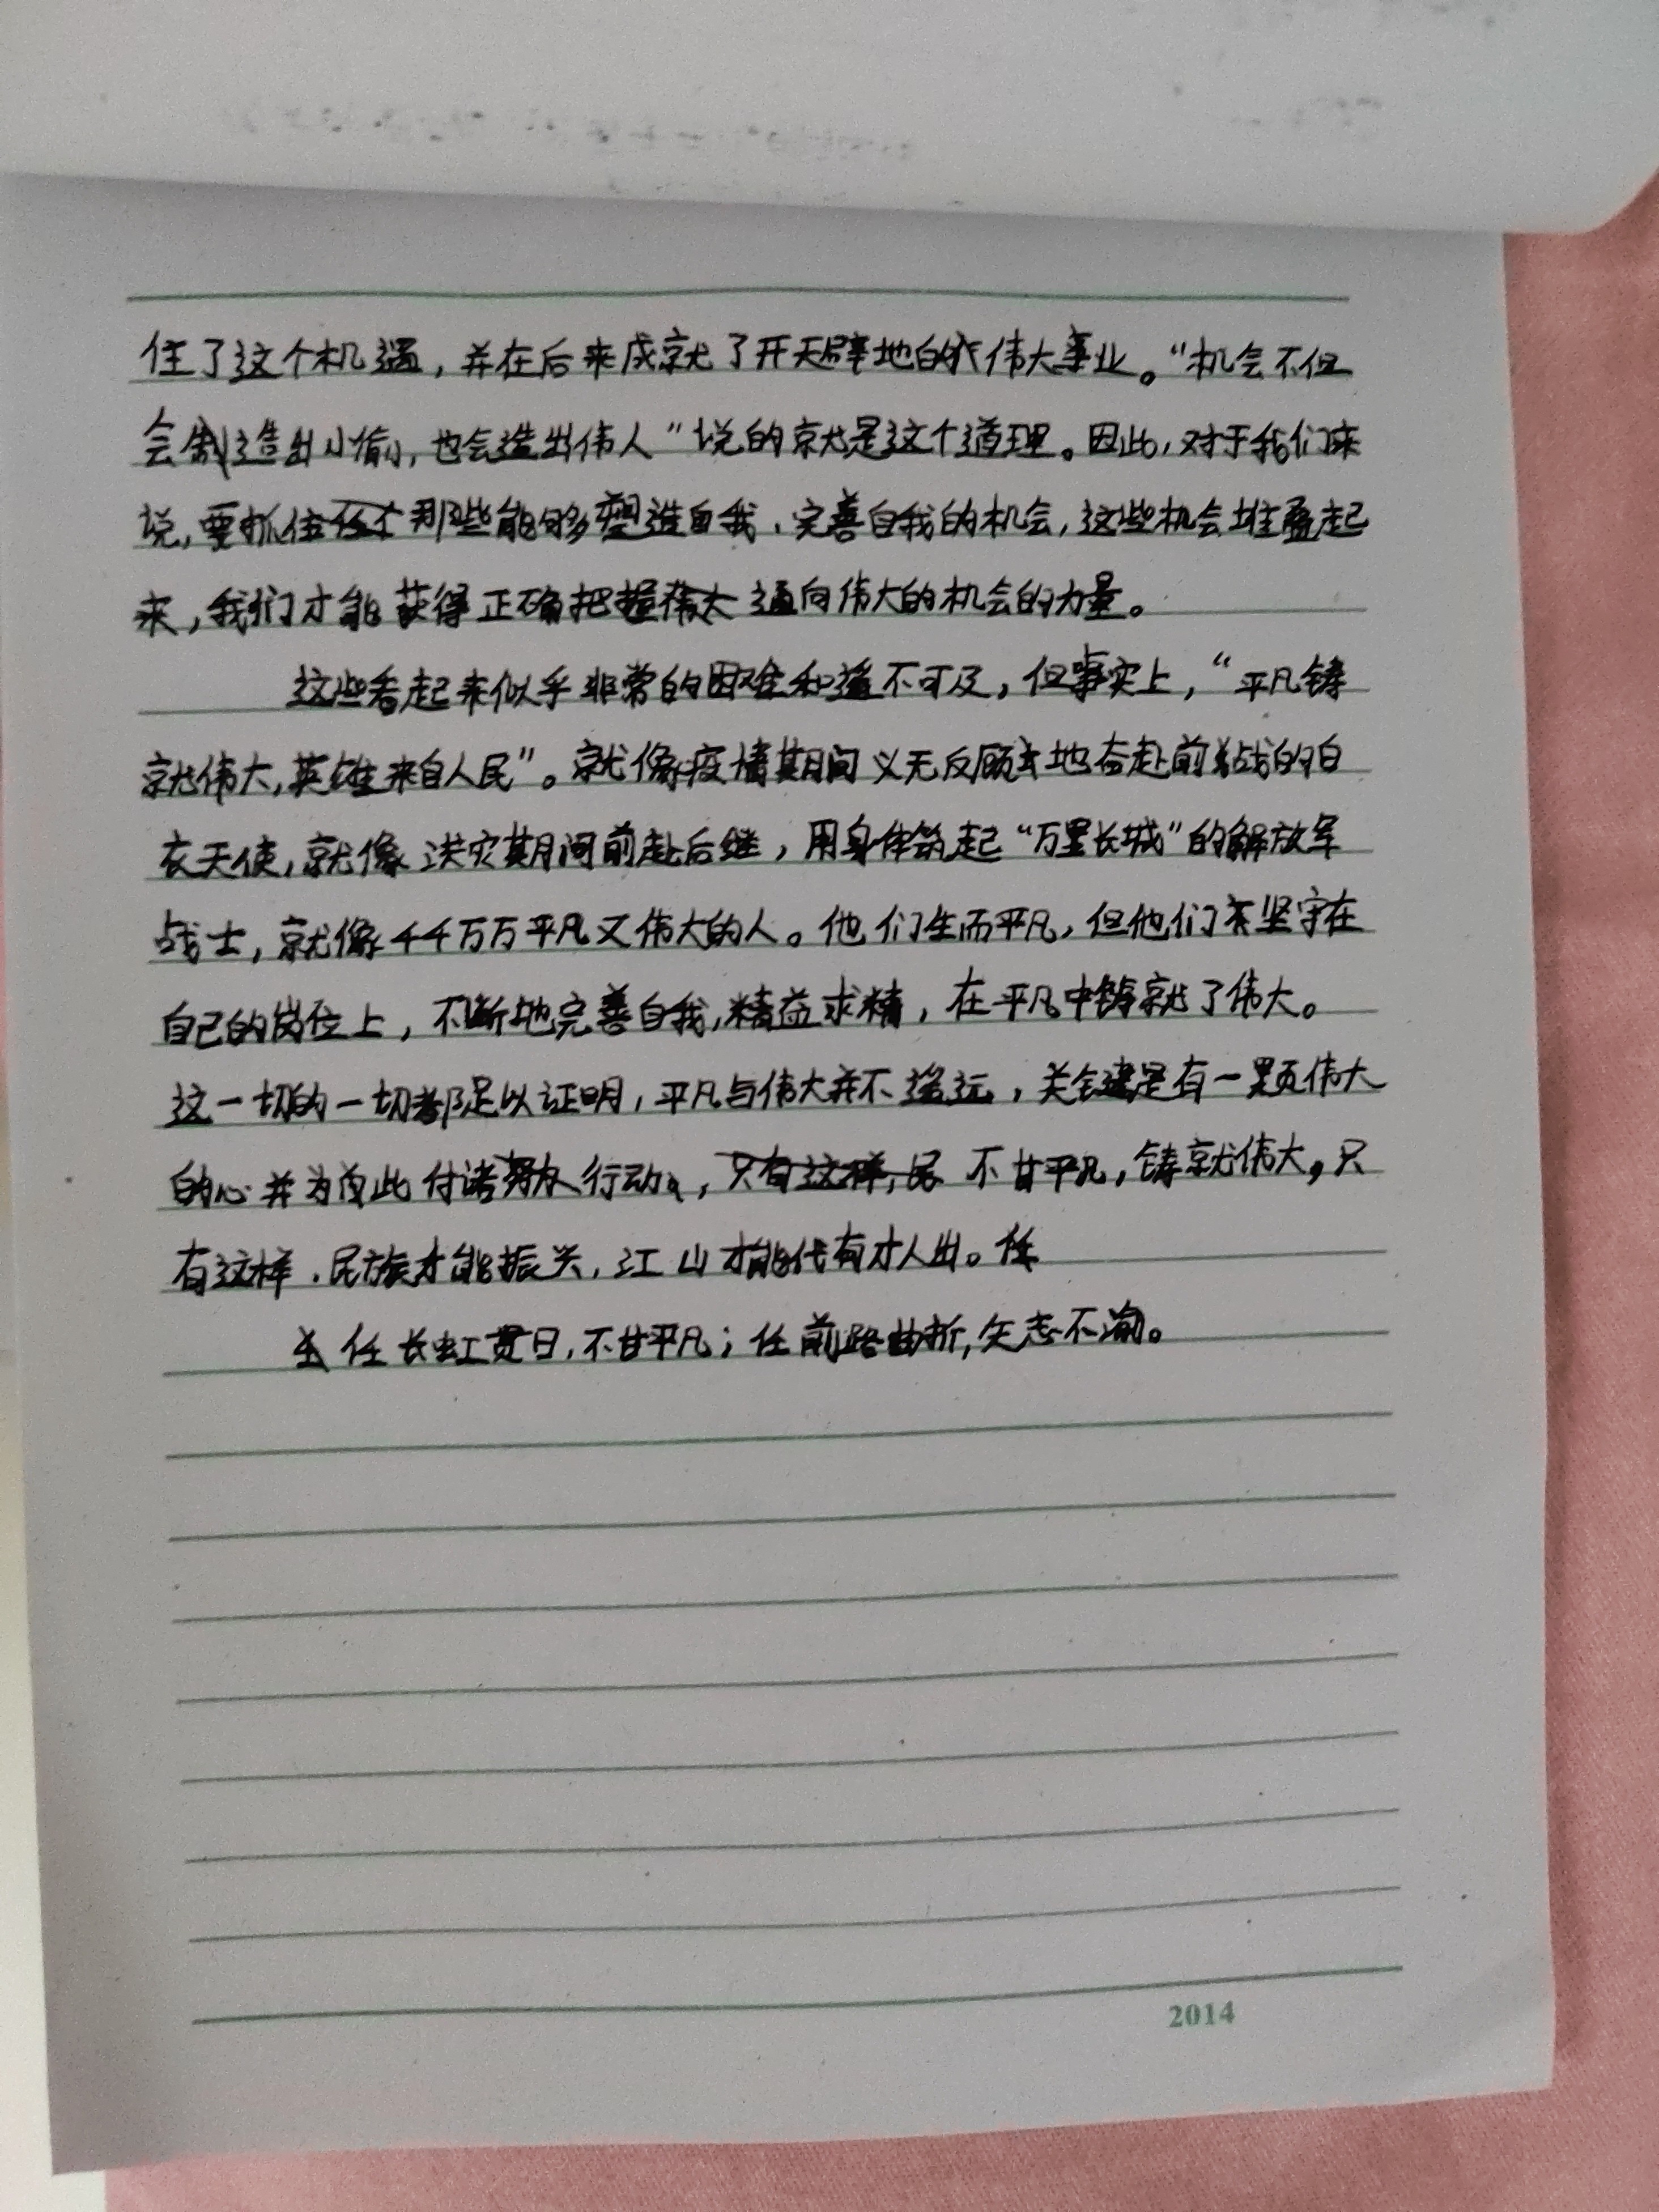 住了这个机遇，并在后来成就了开天辟地的伟大事业。“机会不但
会制造出小偷，也会造出伟人”说的就是这个道理。因此，对于我们来
说，要抓住那些能够塑造自我、完善自我的机会，这些机会堆叠起
来，我们才能获得正确把握通向伟大的机会的力量。
这些看起来似乎非常的困难和遥不可及，但事实上，“平凡铸
就伟大，英雄来自人民”。就像疫情期间义无反顾地奋赴前线的白
衣天使，就像洪灾期间前赴后继，用身体筑起“万里长城”的解放军
战士，就像千千万万平凡又伟大的人。他们生而平凡，但他们坚守在
自己的岗位上，不断地完善自我，精益求精，在平凡中铸就了伟大。
这一切的一切都足以证明，平凡与伟大并不遥远，关键是有一颗伟大
的心并为此付诸行动，不甘平凡，铸就伟大，只
有这样，民族才能振兴，江山才能代有才人出。
任长虹贯日，不甘平凡；任前路曲折，矢志不渝。
2014